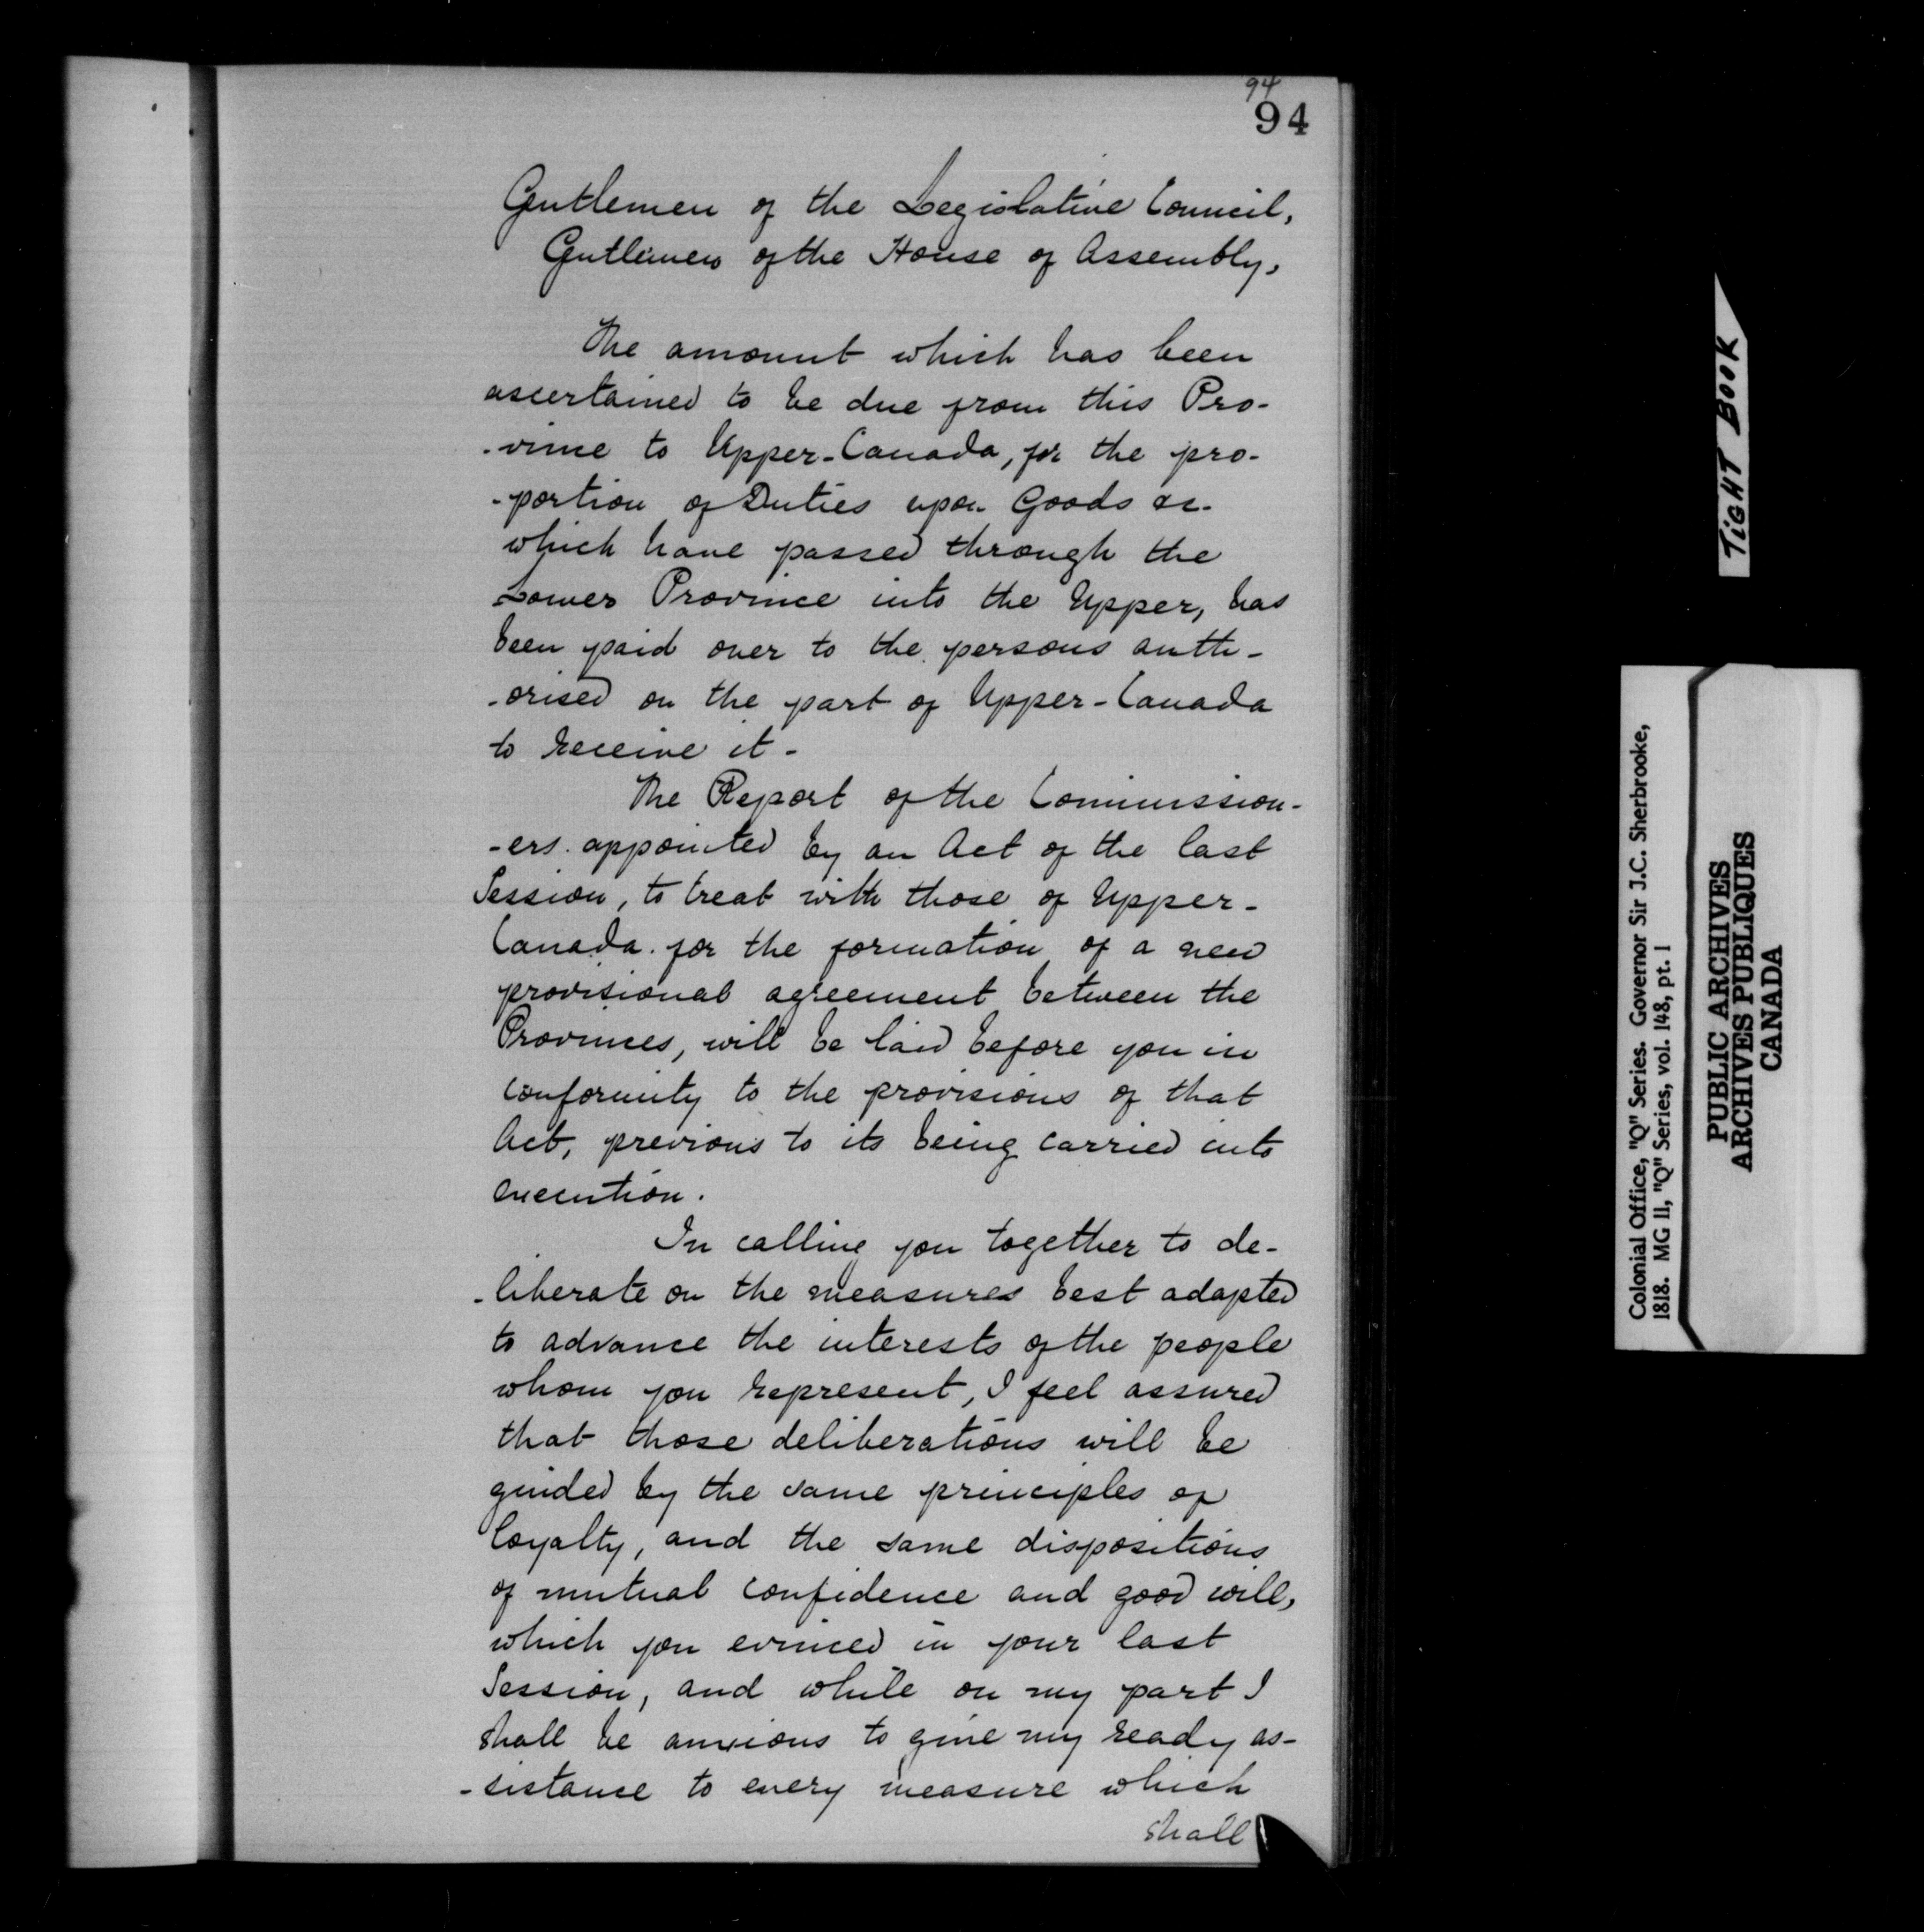 94
94
Gentlemen of the Legislative Council,
Gentlemen of the House of Assembly,
The amount which has been
ascertained to be due from this Pro-
-vince to Upper-Canada, for the pro-
-portion of Duties upon Goods &c.
which have passed through the
Lower Province into the Upper, has
been paid over to the persons auth-
-orised on the part of Upper-Canada
to receive it -
The Report of the Commission-
-ers appointed by an Act of the last
Session, to treat with those of Upper-
Canada for the formation of a new
provisional agreement between the
Provinces, will be laid before you in
conformity to the provisions of that
Act, previous to its being carried into
execution.
In calling you together to de-
-liberate on the measures best adapted
to advance the interests of the people
whom you represent, I feel assured
that those deliberations will be
guided by the same principles of
loyalty, and the same dispositions
of mutual confidence and good will,
which you evinced in your last
Session, and while on my part I
shall be anxious to give my ready as-
-sistance to every measure which
shall
TIGHT BOOK
Colonial Office, "Q" Series. Governor Sir J.C. Sherbrooke,
1818. MG 11, "Q" Series, vol. 148, pt. 1
PUBLIC ARCHIVES
ARCHIVES PUBLIQUES
CANADA